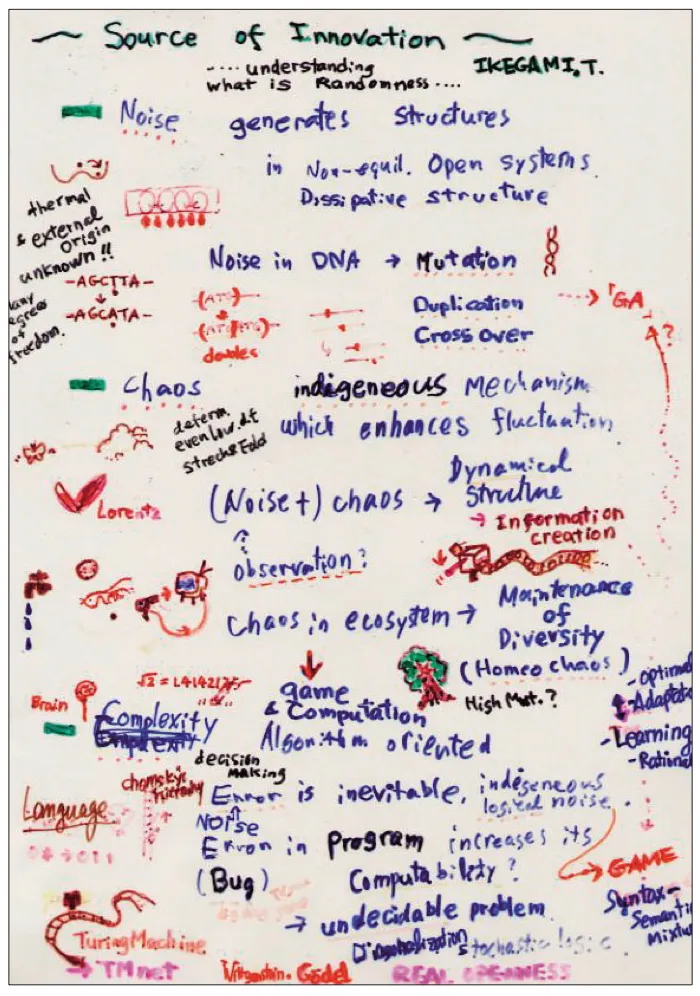 ~ Source of Innovation ~
.... understanding
what is Randomness ....
IKEGAMI, T.
Noise generates structures
in Non-equil. Open systems
Dissipative structure
thermal
& external
origin
unknown!!
Noise in DNA → Mutation
-AGCTTA-
↓
-AGCATA-
any
egrees
of
freedom.
(ATG)
doubles
Duplication
Cross over
→ 「GA」
A?
Chaos indigeneous Mechanism
which enhances fluctuation
determ.
even low d.f
strech & Fold
Lorentz
(Noise+) chaos → Dynamical
Structure
→ Information
creation
?
observation?
Chaos in ecosystem → Maintenance
of
Diversity
(Homeo chaos)
High Mut.?
√2 = 1.4142135
Brain
game
& Computation
Complexity
Complexity
Algorithm oriented
- optimal
- Adaptat
- Learning
- Rational
decision
making
chomsky's
hierarchy
Language
Error is inevitable, indegeneous
logical noise.
NOISE
Error in Program increases its
(Bug) Computability?
→ GAME
→ undecidable problem
Diagonalization stochastic logic.
Syntax-
Semantic
Mixtu
Turing Machine
→ TM net
Wittgenstein. Gödel
REAL OPENNESS